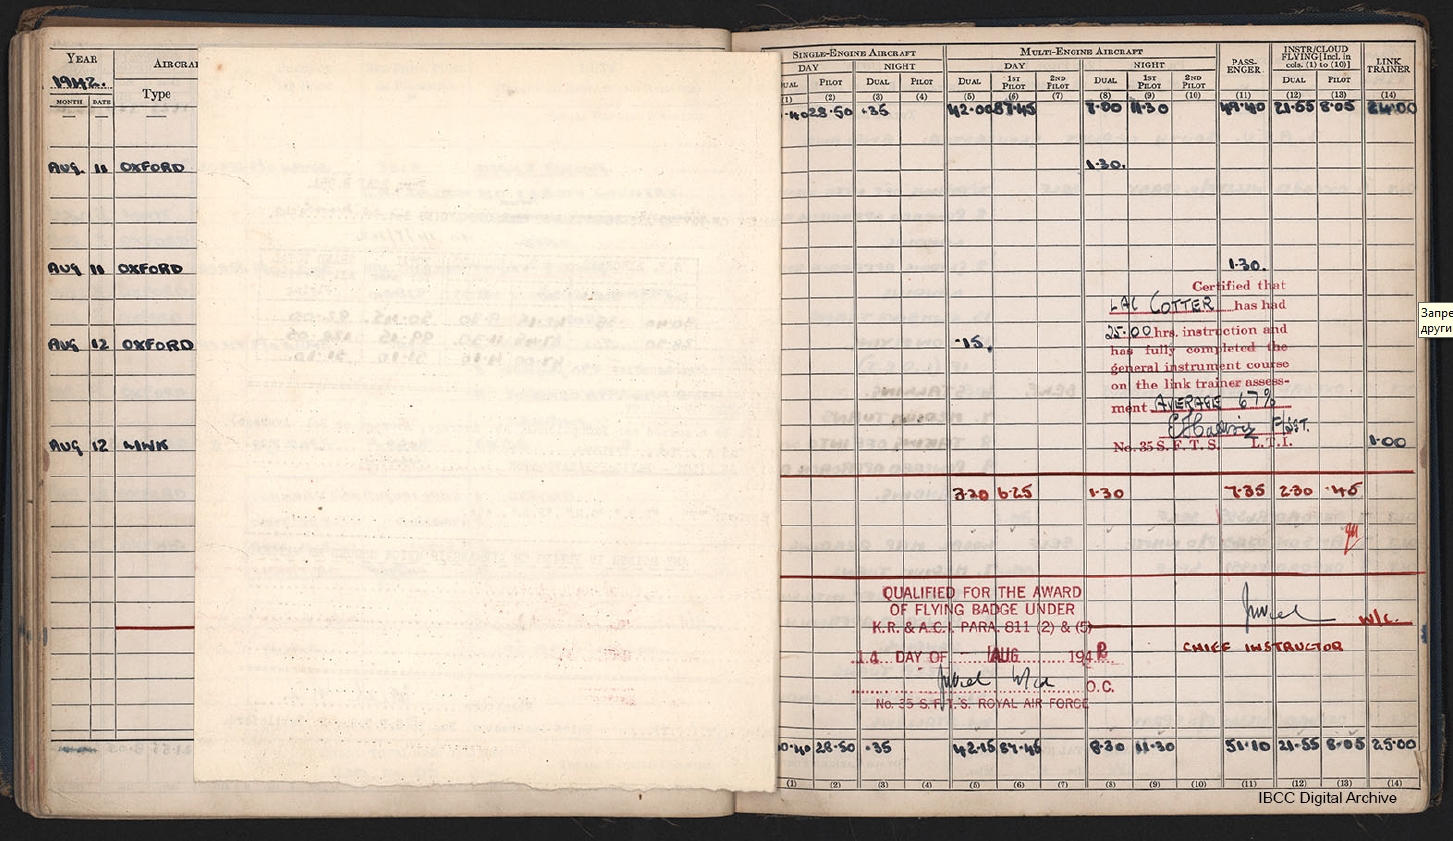 YEAR
AIRCRA
1942.
MONTH DATE
Type
— —
AUG. 11 OXFORD
AUG 11 OXFORD
AUG 12 OXFORD
AUG 12 LINK
SINGLE-ENGINE AIRCRAFT MULTI-ENGINE AIRCRAFT PASS-ENGER INSTR/CLOUD FLYING [Incl. in cols. (1) to (10)] LINK TRAINER
DAY NIGHT DAY NIGHT
UAL PILOT DUAL PILOT DUAL 1ST PILOT 2ND PILOT DUAL 1ST PILOT 2ND PILOT DUAL PILOT
(1) (2) (3) (4) (5) (6) (7) (8) (9) (10) (11) (12) (13) (14)
.40 28.50 .35 42.00 87.45 7.00 11.30 49.40 21.55 8.05 24.00
1.30.
1.30.
Certified that
LAC COTTER has had
25.00 hrs. instruction and
has fully completed the
general instrument course
on the link trainer assess-
ment AVERAGE 67%
F/SGT.
No. 35 S.F.T.S. L.T.I.
.15.
1.00
7.20 6.25 1.30 7.35 2.30 .45
QUALIFIED FOR THE AWARD
OF FLYING BADGE UNDER
K.R. & A.C.I. PARA. 811 (2) & (5)
14 DAY OF AUG 1942
O.C.
No. 35 S.F.T.S. ROYAL AIR FORCE
W/C.
CHIEF INSTRUCTOR
0.40 28.50 .35 42.15 87.45 8.30 11.30 51.10 21.55 8.05 25.00
(1) (2) (3) (4) (5) (6) (7) (8) (9) (10) (11) (12) (13) (14)
IBCC Digital Archive
Запре
други